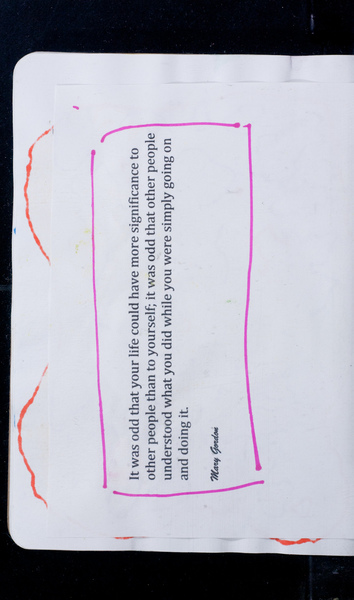 It was odd that your life could have more significance to
other people than to yourself; it was odd that other people
understood what you did while you were simply going on
and doing it.
Mary Gordon